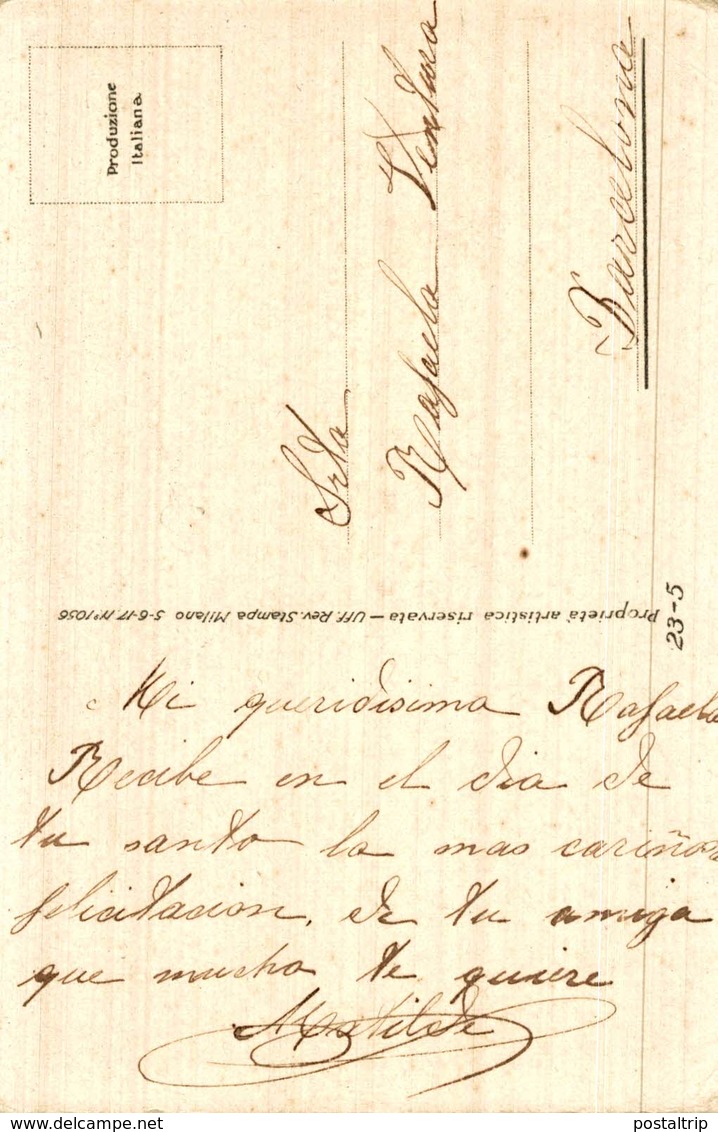 Produzione
Italiana.
Srta
Rafaela Ventura
Barcelona
Proprietà artistica riservata - Uff. Rev. Stampa Milano 5-6-17. N° 1056
23-5
Mi queridisima Rafaela
Recibe en el dia de
tu santo la mas cariñosa
felicitacion, de tu amiga
que mucho te quiere
Matilde
delcampe.net
postaltrip